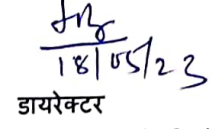 18/05/23
डायरेक्टर